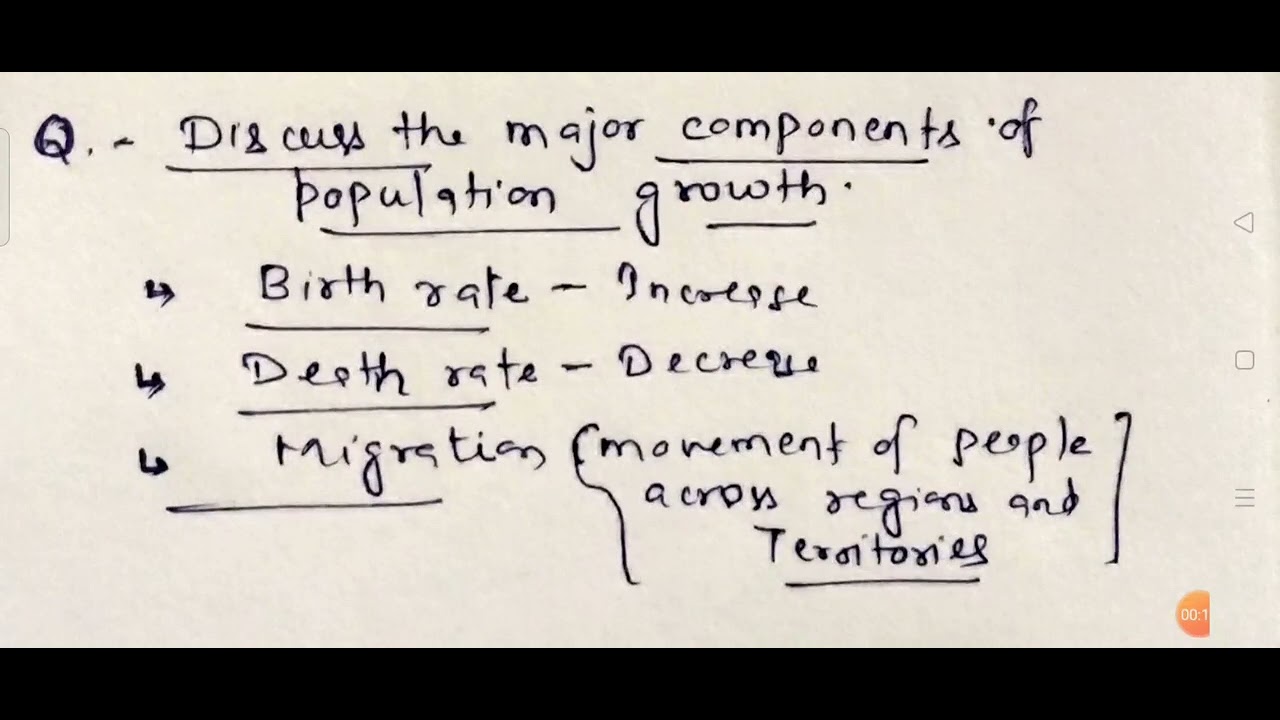 Q. - Discuss the major components of
population growth.
↳ Birth rate - Increase
↳ Death rate - Decrease
↳ Migration (movement of people
across regions and
Territories
00:1